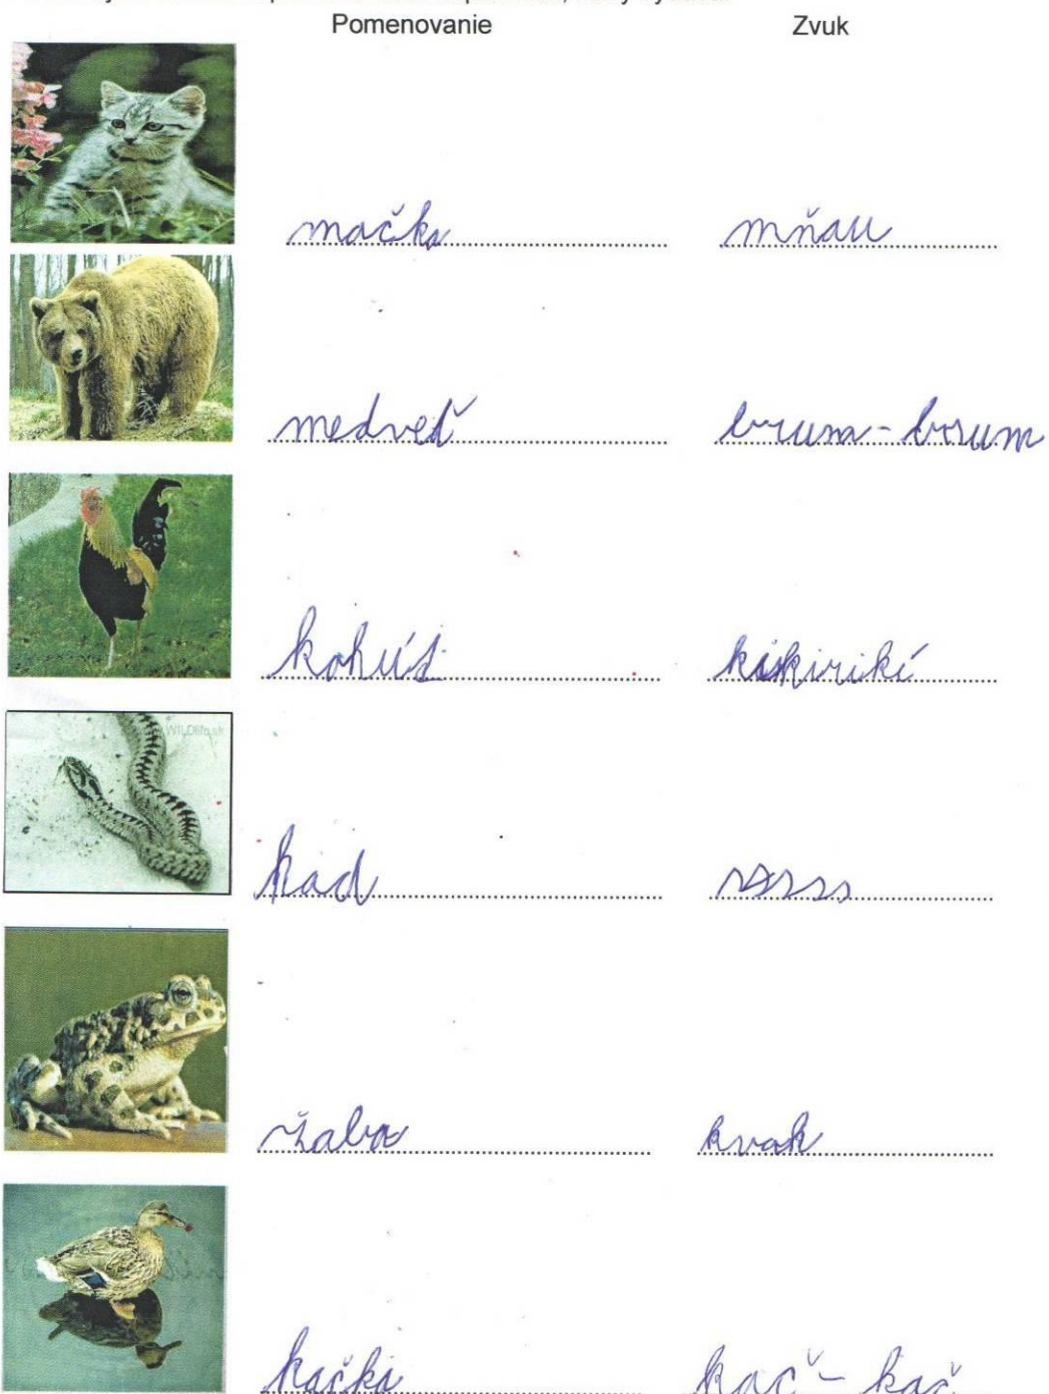 Pomenovanie Zvuk
mačka mňau
medveď brum - brum
kohút kikirikí
WILDlife.sk
had sssss
žaba kvak
kačka kač - kač